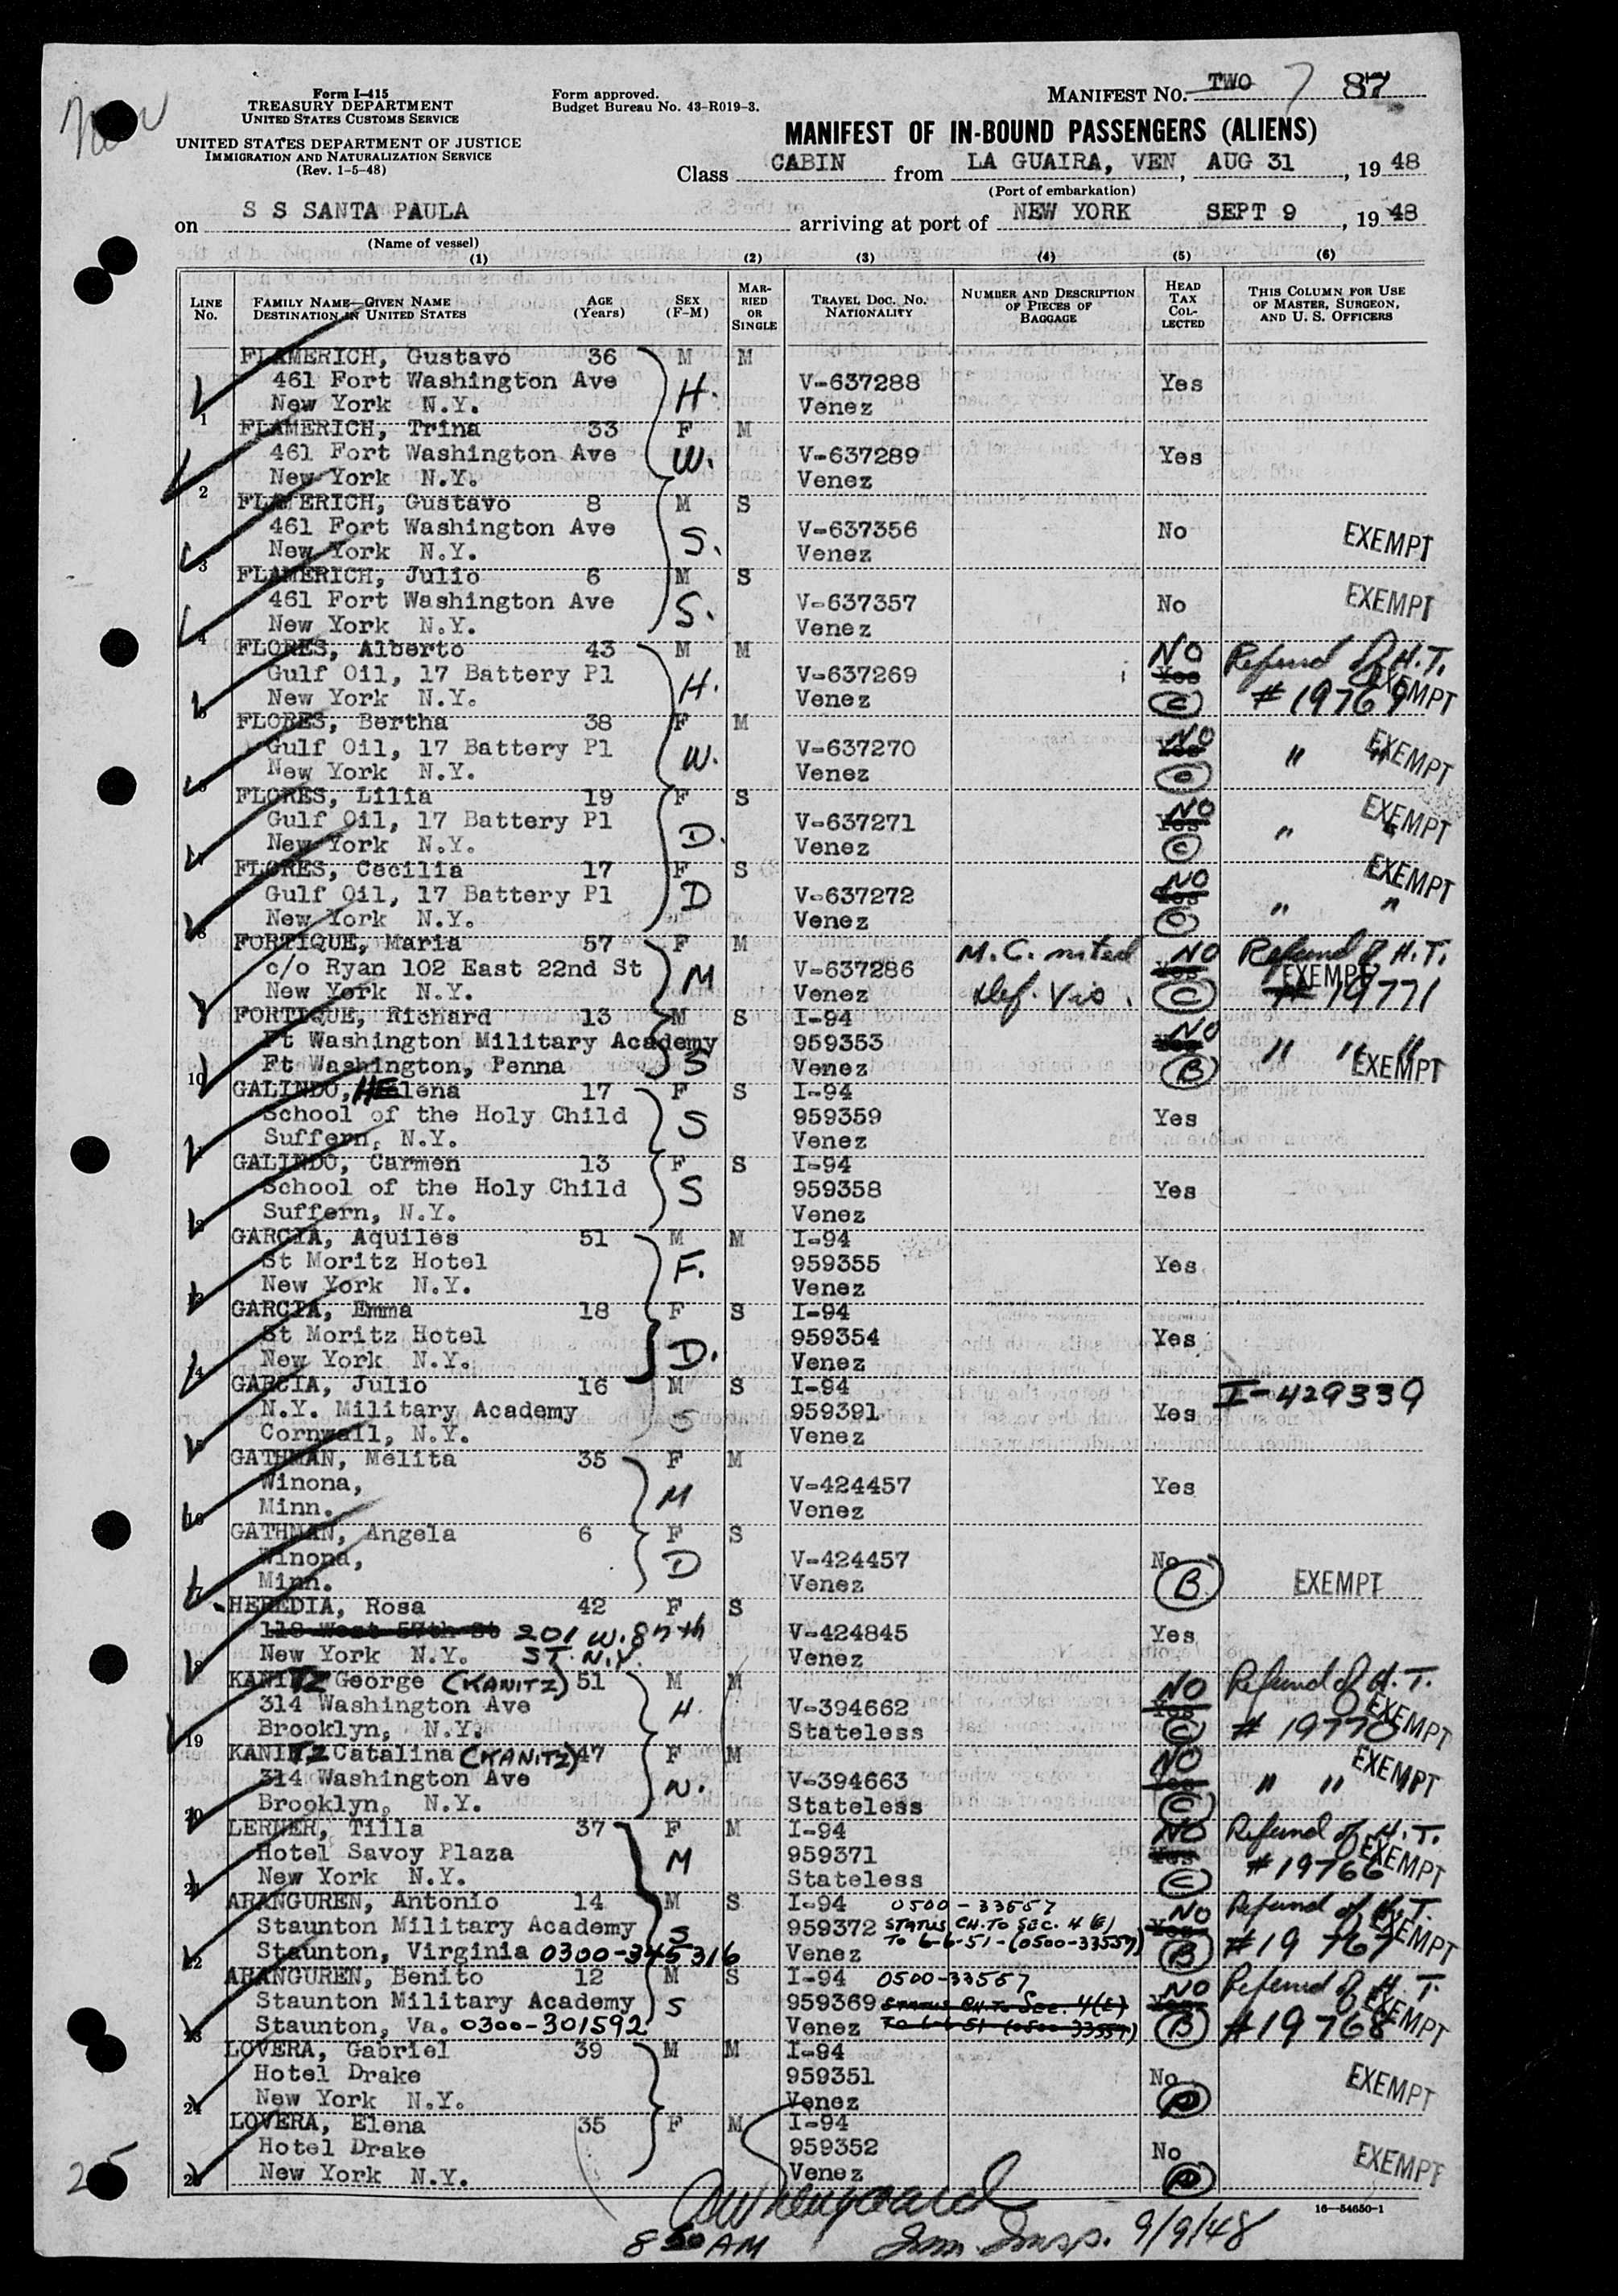 New
Form I-415
TREASURY DEPARTMENT
UNITED STATES CUSTOMS SERVICE
UNITED STATES DEPARTMENT OF JUSTICE
IMMIGRATION AND NATURALIZATION SERVICE
(Rev. 1-5-48)
Form approved.
Budget Bureau No. 43-R019-3.
MANIFEST NO. TWO 7 87
MANIFEST OF IN-BOUND PASSENGERS (ALIENS)
Class CABIN from LA GUAIRA, VEN, AUG 31, 19 48
(Port of embarkation)
on S S SANTA PAULA arriving at port of NEW YORK SEPT 9, 19 48
(Name of vessel)
(1) (2) (3) (4) (5) (6)
LINE No. FAMILY NAME—GIVEN NAME DESTINATION IN UNITED STATES AGE (Years) SEX (F-M) MARRIED OR SINGLE TRAVEL DOC. NO. NATIONALITY NUMBER AND DESCRIPTION OF PIECES OF BAGGAGE HEAD TAX COLLECTED THIS COLUMN FOR USE OF MASTER, SURGEON, AND U. S. OFFICERS
FLAMERICH, Gustavo 36 M M
461 Fort Washington Ave H. V-637288 Yes
1 New York N.Y. Venez
FLAMERICH, Trina 33 F M
461 Fort Washington Ave W. V-637289 Yes
2 New York N.Y. Venez
FLAMERICH, Gustavo 8 M S
461 Fort Washington Ave S. V-637356 No EXEMPT
3 New York N.Y. Venez
FLAMERICH, Julio 6 M S
461 Fort Washington Ave S. V-637357 No EXEMPT
4 New York N.Y. Venez
FLORES, Alberto 43 M M NO Refund of H.T.
Gulf Oil, 17 Battery Pl H. V-637269 Yes EXEMPT
New York N.Y. Venez C #19769
FLORES, Bertha 38 F M NO
Gulf Oil, 17 Battery Pl W. V-637270 Yes " " EXEMPT
New York N.Y. Venez C
FLORES, Lilia 19 F S NO EXEMPT
Gulf Oil, 17 Battery Pl D. V-637271 Yes " "
New York N.Y. Venez C
FLORES, Cecilia 17 F S NO EXEMPT
Gulf Oil, 17 Battery Pl D V-637272 Yes " "
8 New York N.Y. Venez C
FORTIQUE, Maria 57 F M M.C. noted NO Refund of H.T.
c/o Ryan 102 East 22nd St M V-637286 Yes EXEMPT
9 New York N.Y. Venez Def. Vis. C # 19771
FORTIQUE, Richard 13 M S I-94 NO
Ft Washington Military Academy 959353 Yes " " "
10 Ft Washington, Penna S Venez B EXEMPT
GALINDO, HElena 17 F S I-94
School of the Holy Child S 959359 Yes
Suffern, N.Y. Venez
GALINDO, Carmen 13 F S I-94
School of the Holy Child S 959358 Yes
Suffern, N.Y. Venez
GARCIA, Aquiles 51 M M I-94
St Moritz Hotel F. 959355 Yes
New York N.Y. Venez
GARCIA, Emma 18 F S I-94
St Moritz Hotel D. 959354 Yes
14 New York N.Y. Venez
GARCIA, Julio 16 M S I-94 I-429339
N.Y. Military Academy S 959391 Yes
15 Cornwall, N.Y. Venez
GATHMAN, Melita 35 F M
Winona, M V-424457 Yes
16 Minn. Venez
GATHMAN, Angela 6 F S
Winona, D V-424457 No
17 Minn. Venez B EXEMPT
HEREDIA, Rosa 42 F S
118 West 57th St 201 W. 87th V-424845 Yes
New York N.Y. ST. N.Y. Venez
KANITZ George (KANITZ) 51 M M NO Refund of H.T.
314 Washington Ave H. V-394662 Yes EXEMPT
19 Brooklyn, N.Y. Stateless C # 19770
KANITZ Catalina (KANITZ) 47 F M NO EXEMPT
314 Washington Ave W. V-394663 Yes " " "
20 Brooklyn, N.Y. Stateless C
LERNER, Tilla 37 F M I-94 NO Refund of H.T.
Hotel Savoy Plaza M 959371 Yes EXEMPT
21 New York N.Y. Stateless C #19766
ARANGUREN, Antonio 14 M S I-94 0500-33557 NO Refund of H.T.
Staunton Military Academy S 959372 STATUS CH. TO SEC. 4(E) Yes EXEMPT
22 Staunton, Virginia 0300-345316 Venez TO 6-6-51-(0500-33557) B #19 767
ARANGUREN, Benito 12 M S I-94 0500-33567 NO Refund of H.T.
Staunton Military Academy S 959369 STATUS CH. TO SEC. 4(E) Yes EXEMPT
23 Staunton, Va. 0300-301592 Venez TO 6-6-51 (0500-33557) B #19 768
LOVERA, Gabriel 39 M M I-94
Hotel Drake 959351 No EXEMPT
24 New York N.Y. Venez
LOVERA, Elena 35 F M I-94
Hotel Drake 959352 No EXEMPT
25 New York N.Y. Venez
25
16—54650-1
8 50 AM Imm. Insp. 9/9/48